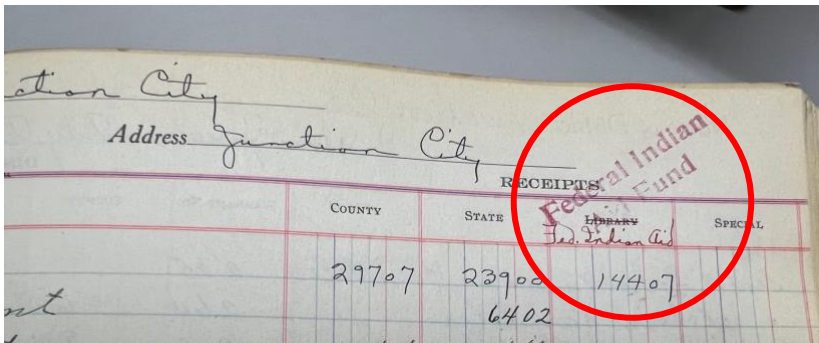 ction City
Address Junction City
Federal Indian
Aid Fund
RECEIPTS
COUNTY STATE LIBRARY SPECIAL
Fed. Indian Aid
29707 23900 14407
nt 6402